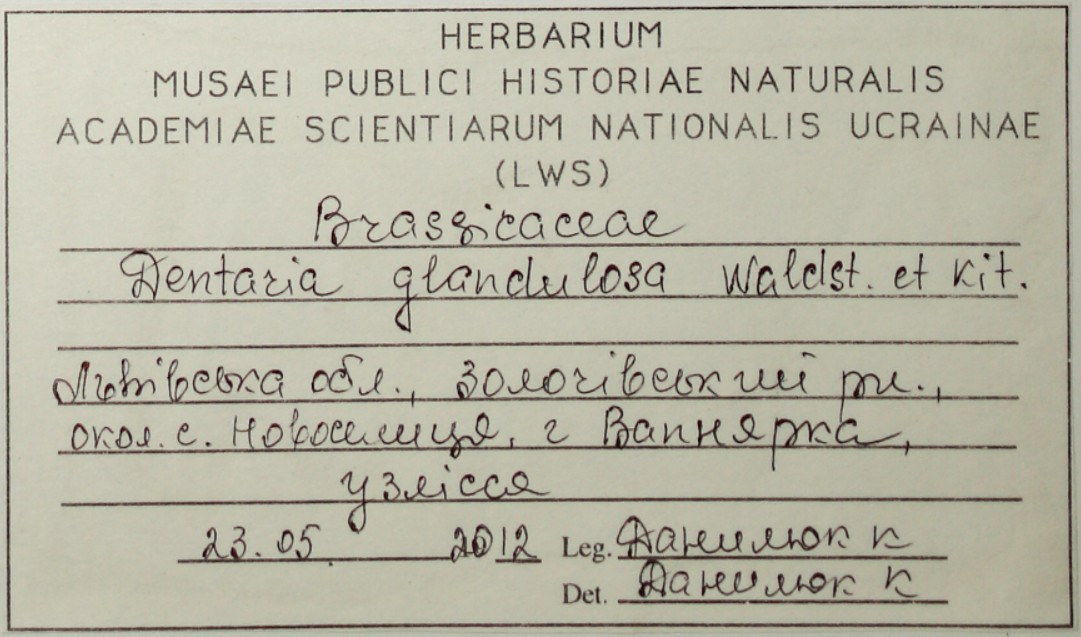 HERBARIUM
MUSAEI PUBLICI HISTORIAE NATURALIS
ACADEMIAE SCIENTIARUM NATIONALIS UCRAINAE
(LWS)
Brassicaceae
Dentaria glandulosa Waldst. et Kit.
Львівська обл., Золочівський рн.,
окол. с. Новоселище, г Вапнярка,
узлісся
23.05 2012 Leg. Данилюк К
Det. Данилюк К